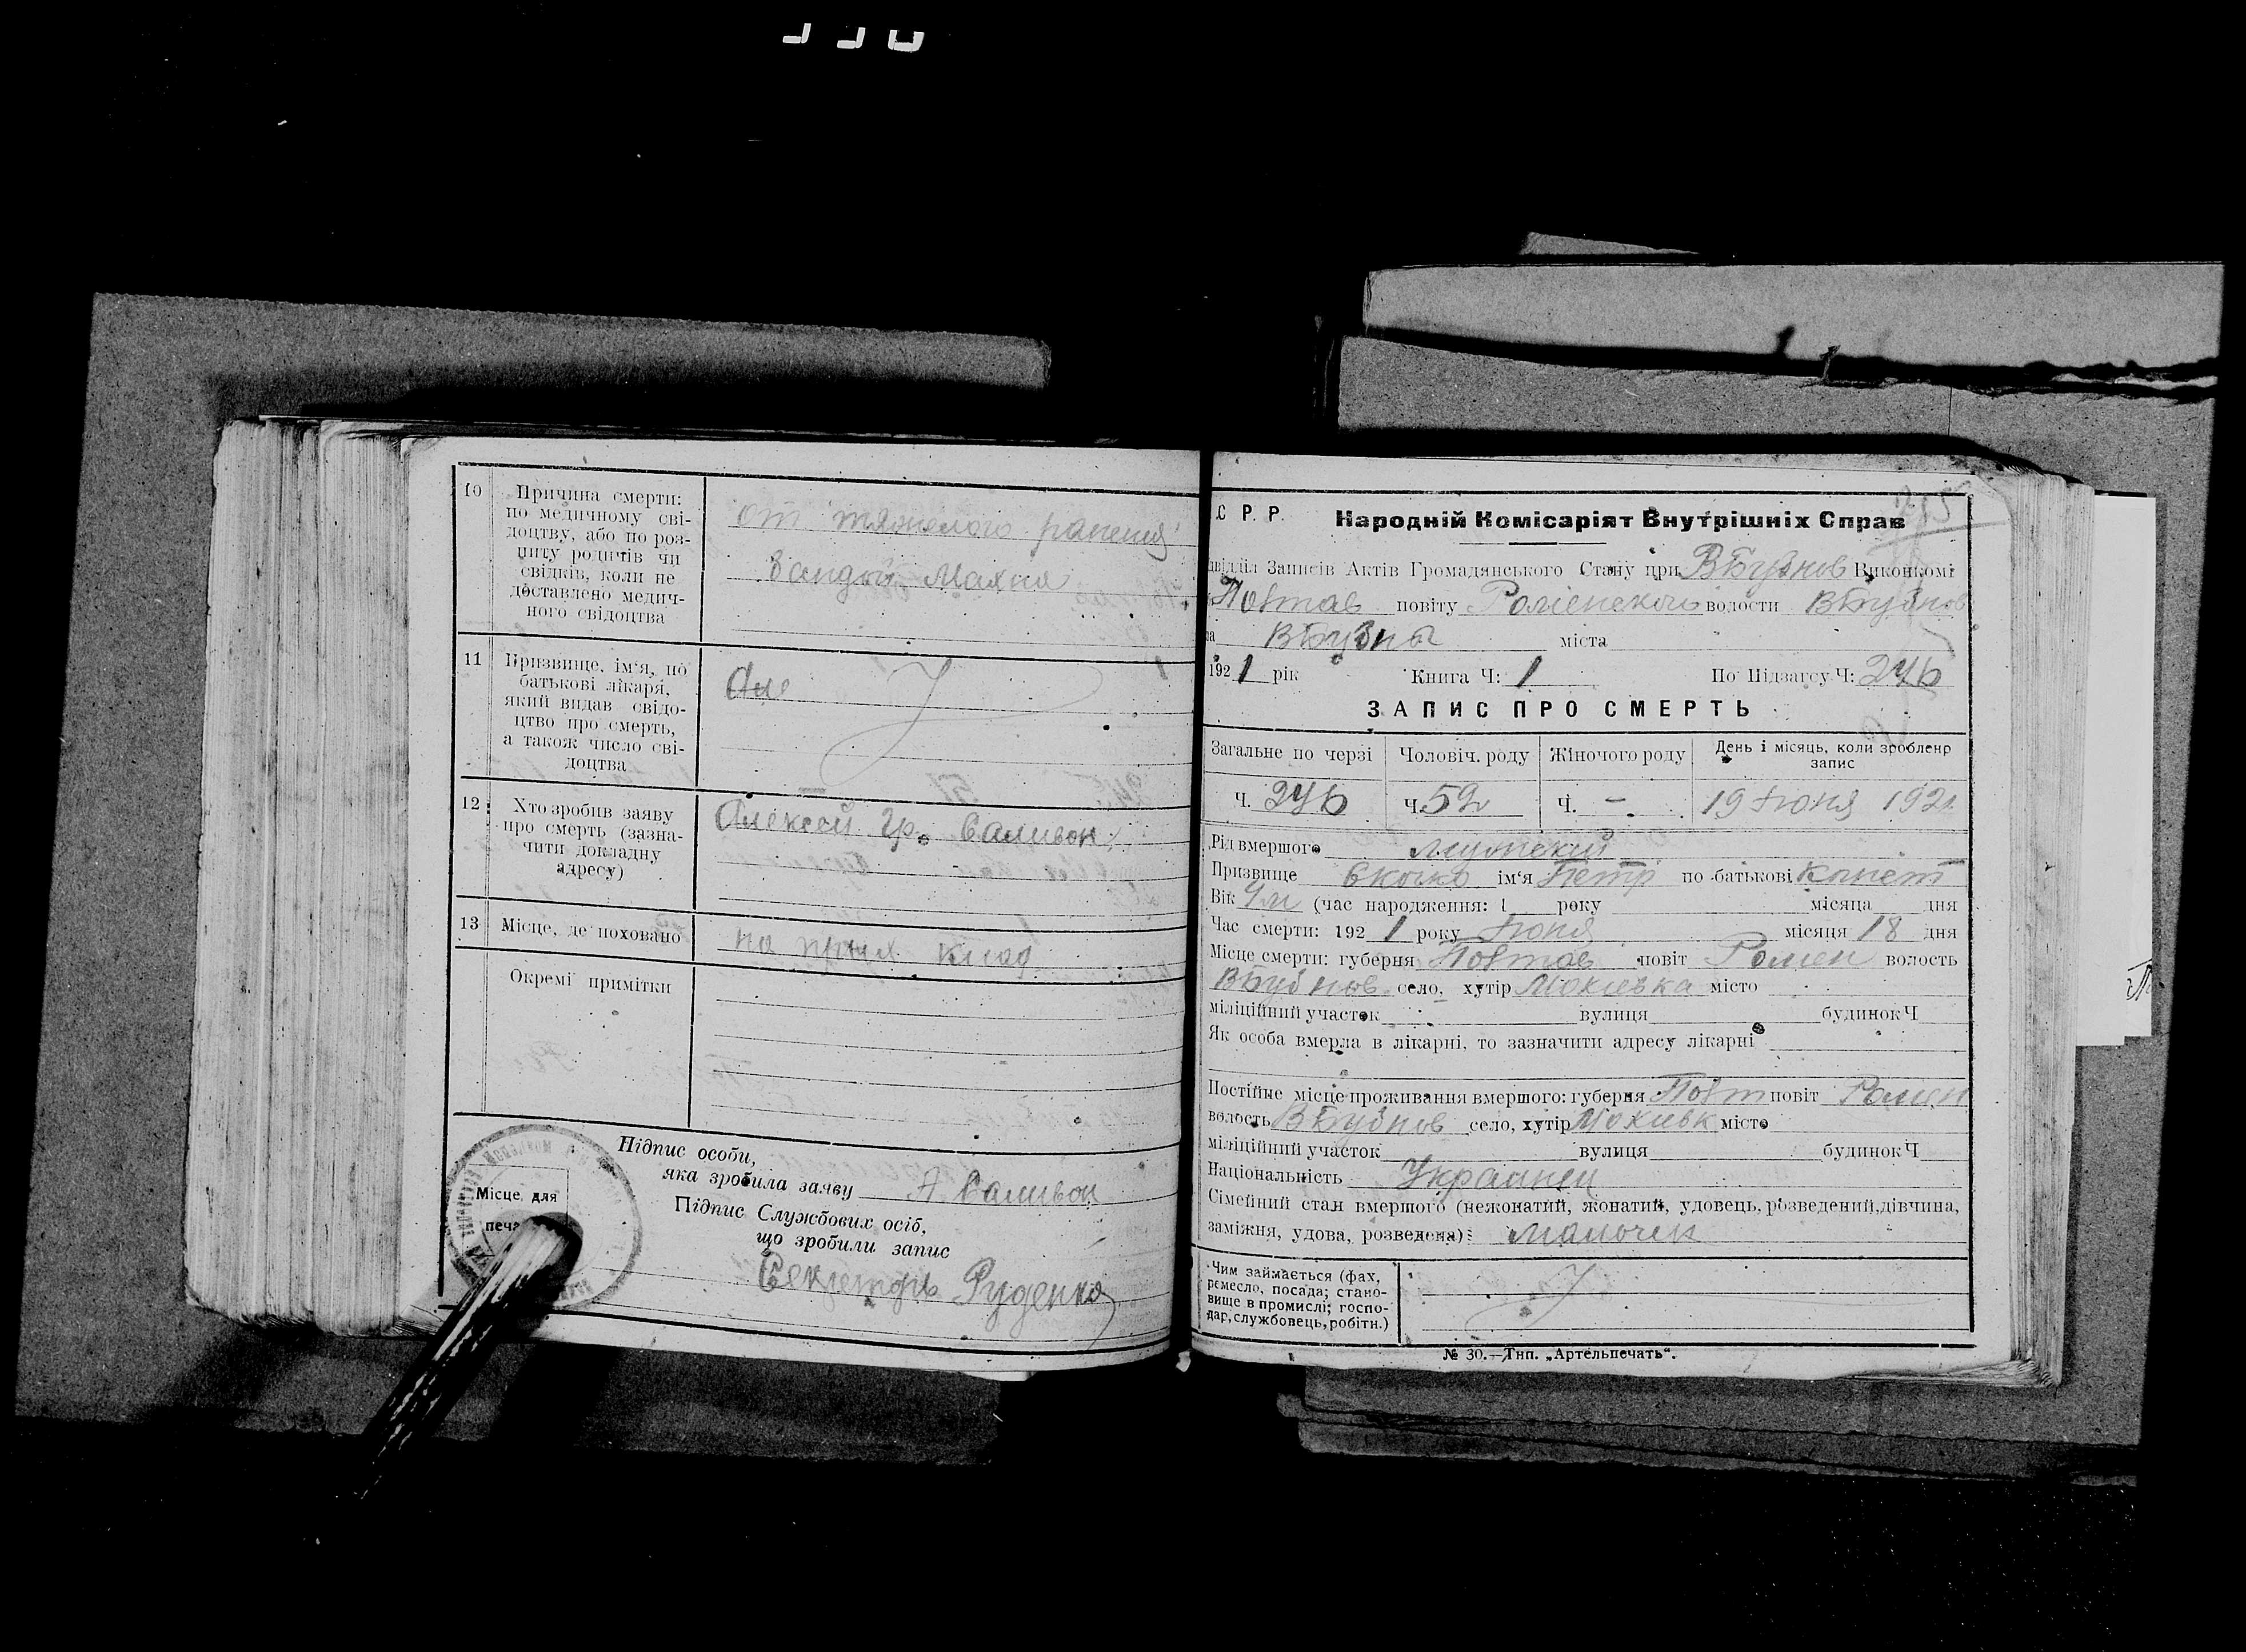 10
Причина смерти:
по медичному сві-
доцтву, або по роз-
питу родичів чи
свідків, коли не
доставлено медич-
ного свідоцтва
от тяжелого ранения
банды Махна
11
Призвище, ім'я, по
батькові лікаря,
який видав свідо-
цтво про смерть,
а також число сві-
доцтва
Але
12
Хто зробив заяву
про смерть (зазна-
чити докладну
адресу)
Алексей гр. Саливон
13
Місце, де поховано
на кклад
Окремі примітки
Підпис особи,
яка зробила заяву А Саливон
Підпис Службових осіб,
що зробили запис
Секретарь Руденко
Місце для
печа
С Р. Р. Народній Комісаріят Внутрішніх Справ
285
двідділ Записів Актів Громадянського Стану при ВБубнов Виконкомі
Полтав повіту Роменской волости ВБубнов
ла ВБубны міста
1921 рік Книга Ч: 1 По Підзагсу Ч: 246
ЗАПИС ПРО СМЕРТЬ
Загальне по черзі Чоловіч. роду Жіночого роду День і місяць, коли зроблено запис
Ч. 246 Ч. 52 Ч. – 19 Июня 1921
Рід вмершого мужской
Призвище ім'я Петр по батькові
Вік 9м (час народження: 1 року місяца дня
Час смерти: 1921 року Июня місяця 18 дня
Місце смерти: губерня Полтав повіт Ромен волость
ВБубнов село, хутір Мокиевка місто
міліційний участок вулиця будинок Ч
Як особа вмерла в лікарні, то зазначити адресу лікарні
Постійне місце проживання вмершого: губерня Полт повіт Ромен
волость ВБубнов село, хутір Мокиевк місто
міліційний участок вулиця будинок Ч
Національність Украинец
Сімейний стан вмершого (нежонатий, жонатий, удовець, розведений, дівчина,
заміжня, удова, розведена): мальчик
Чим займається (фах,
ремесло, посада; стано-
вище в промислі; госпо-
дар, службовець, робітн.)
№ 30.—Тип. „Артельпечать".